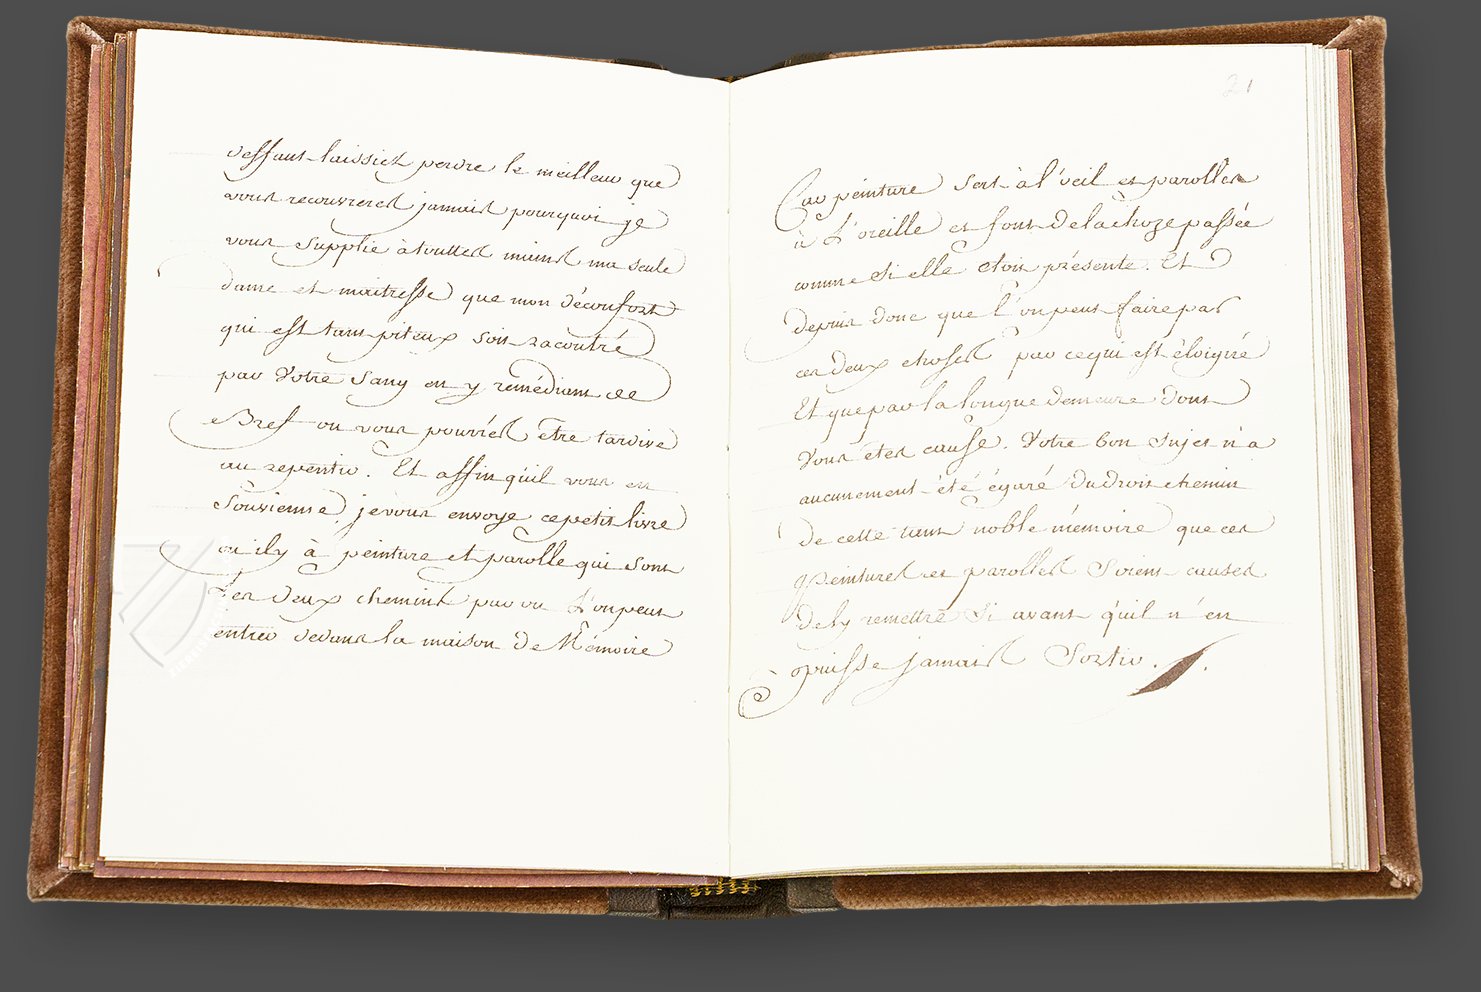 deffaut laissiez perdre le meilleur que
vous recouvrerez jamais pourquoi je
vous supplie à touttes mains ma seule
dame et maitresse que mon déconfort
qui est tant piteux soit racontré
par Votre Sang en y remédiant de
Bref ou vous pourriés être tardive
au repentir. Et affin qu'il vous en
Souvienne, je vous envoye ce petit livre
ou il y à peinture et parolle qui sont
les deux chemins par ou l'on peut
entrer dedans la maison de Mémoire
21
Car peinture sert à l'oeil et parolles
à l'oreille et font de la choze passée
comme si elle etoit présente. Et
depuis donc que l'on peut faire par
ces deux choses par ce qui est éloigné
Et que par la longue demeure dont
Vous etes cause. Votre bon sujet n'a
aucunement été égaré du droit chemin
de cette tant noble mémoire que ces
peintures et parolles soient causes
de ly remettre si avant qu'il n'en
puisse jamais Sortir.